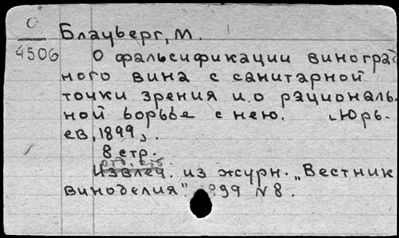 О
4506
Блауберг, М.
О фальсификации виноград
ного вина с санитарной
точки зрения и о рациональ-
ной борьбе с нею. Юрь-
ев, 1899,.
8 стр.
Извлеч. из журн. „Вестник
виноделия". 1899 N 8.